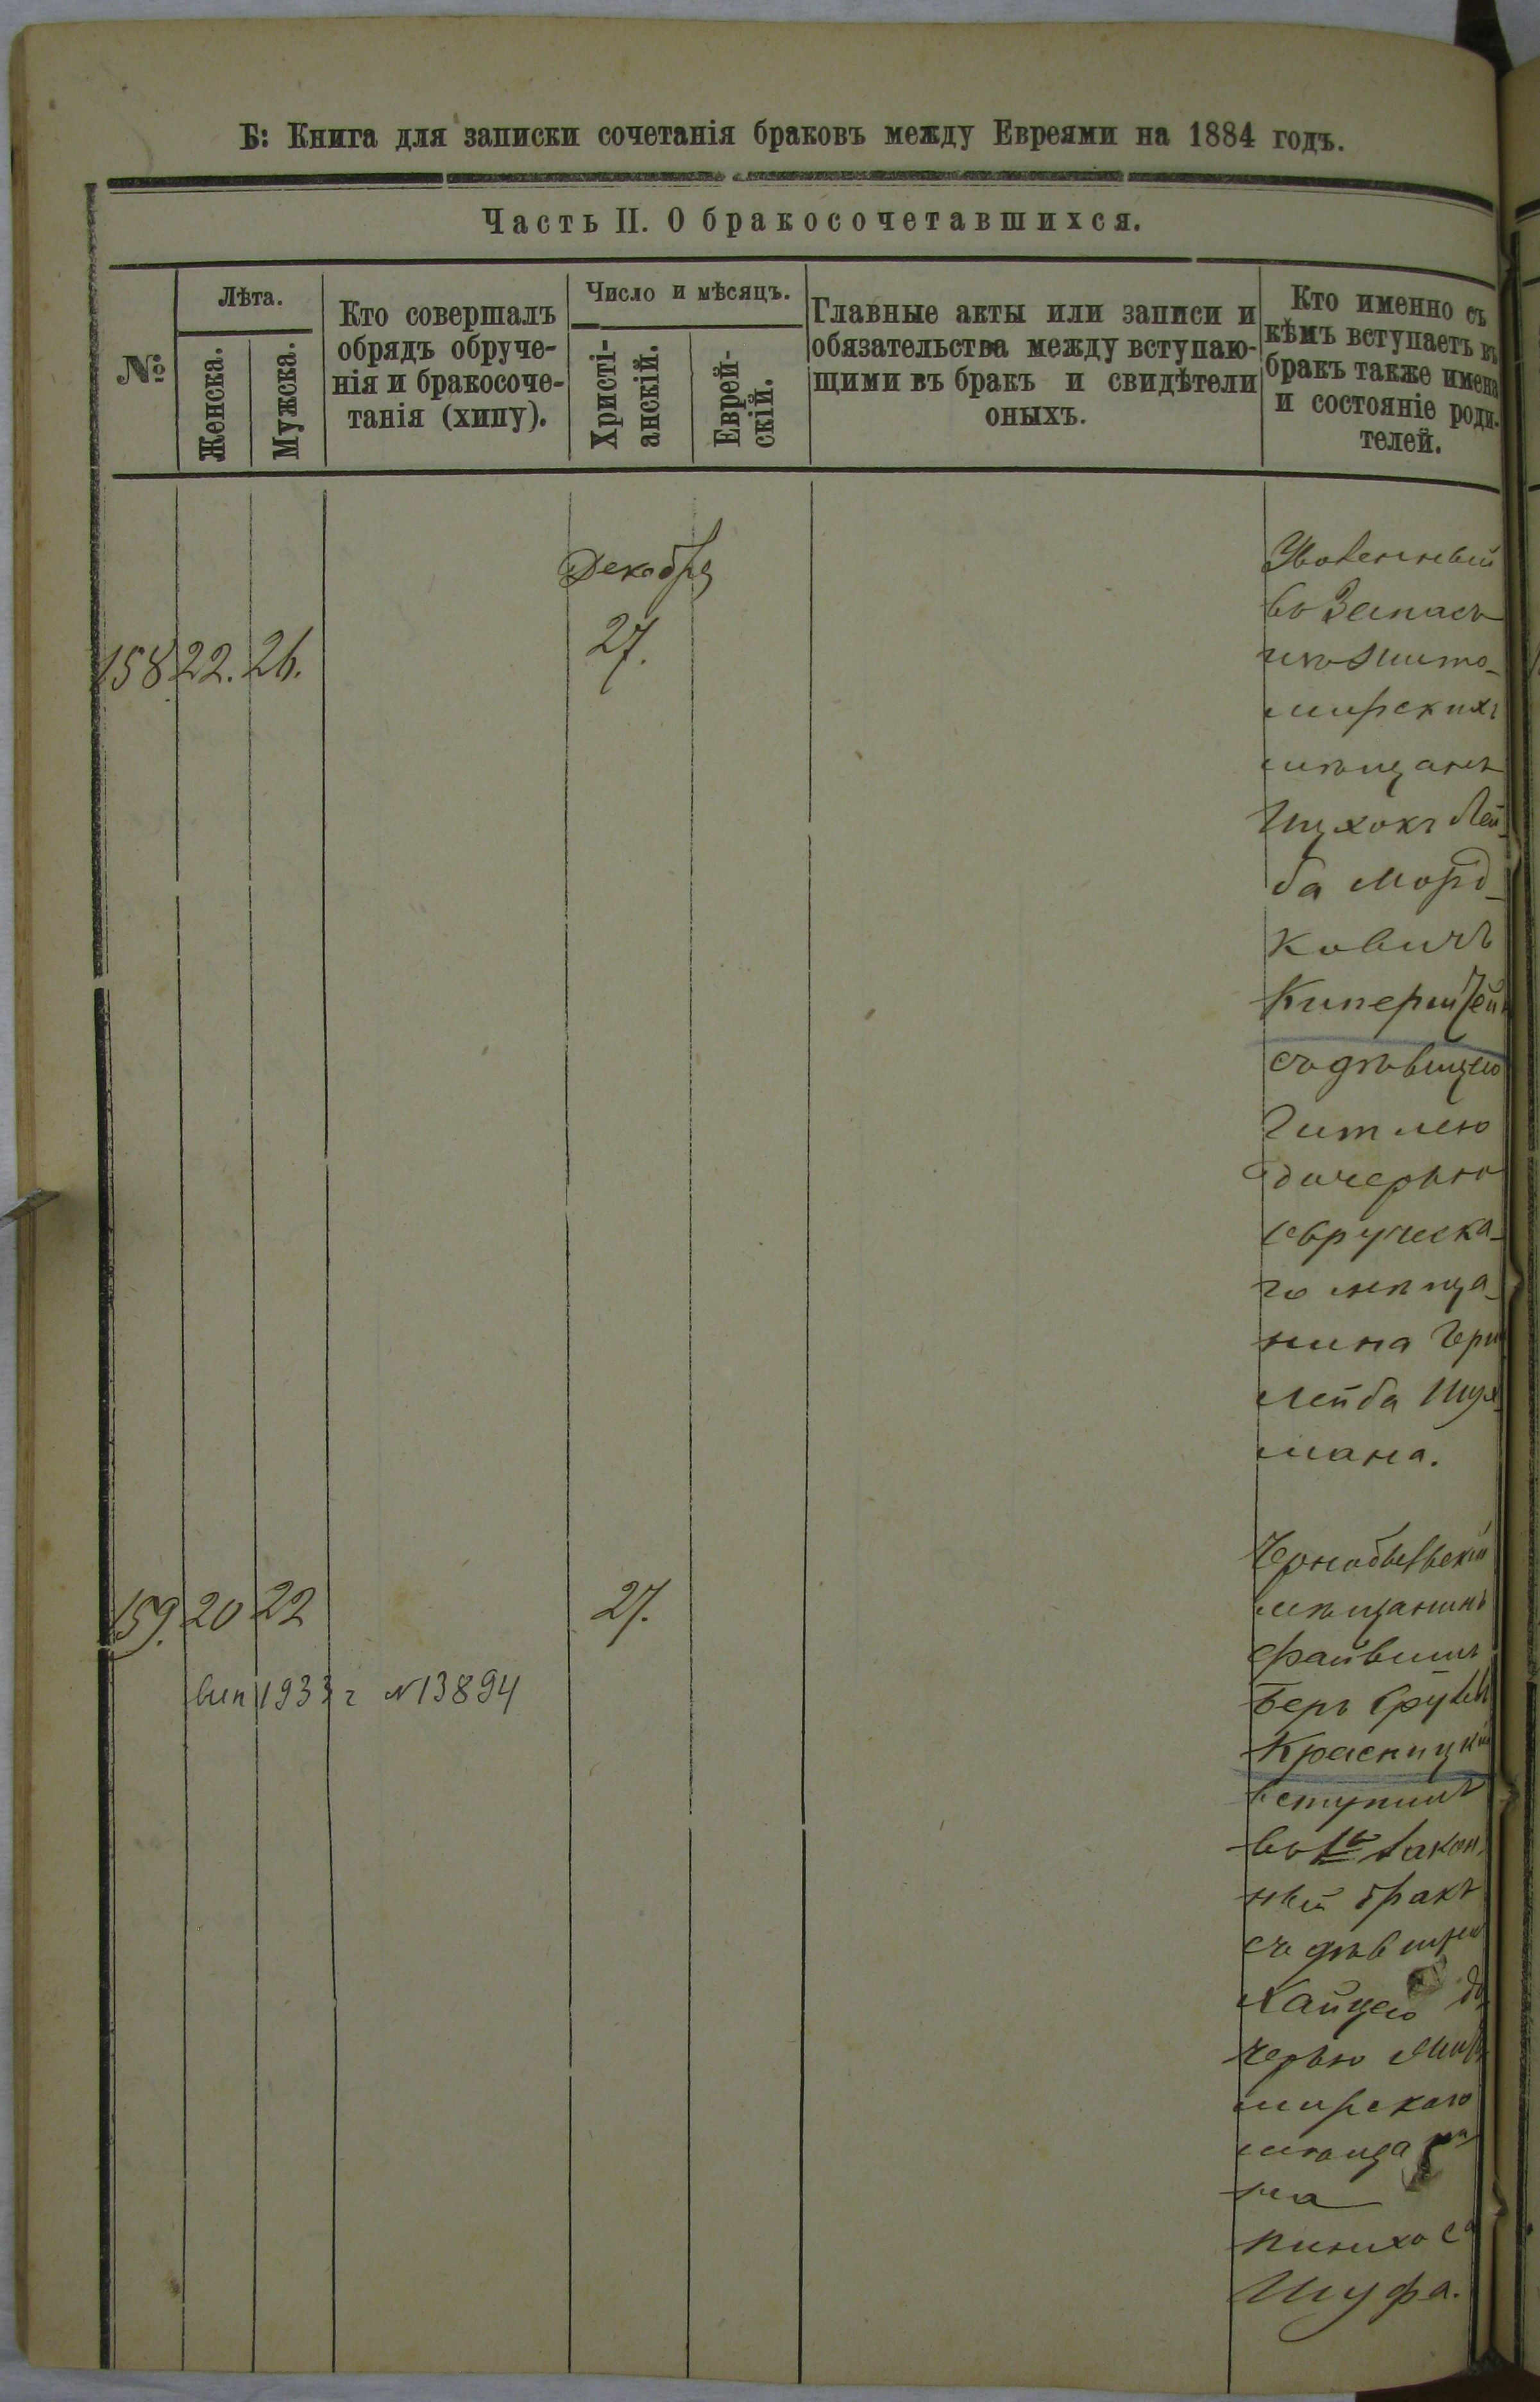 Б: Книга для записки сочетанія браковъ между Евреями на 1884 годъ.
Часть II. О бракосочетавшихся.
№
Лѣта.
Женска.
Мужска.
Кто совершалъ
обрядъ обруче-
нія и бракосоче-
танія (хипу).
Число и мѣсяцъ.
Христі-
анскій.
Еврей-
скій.
Главные акты или записи и
обязательства между вступаю-
щими въ бракъ и свидѣтели
оныхъ.
Кто именно съ
кѣмъ вступаетъ въ
бракъ также имена
и состояніе роди-
телей.
Декабря
158 22. 26. 27.
Уволенный
въ Запасъ
изъ Жито-
мирскихъ
мѣщанъ
Ицхокъ Лей-
ба Морд-
ковичъ
съ дѣвицею
Гитлею
дочерью
овручска-
го мѣща-
нина
Лейба Шух-
мана.
159. 20 22 27.
вип 1933 г N 13894
Чернобыльскій
мѣщанинъ
Файвишъ
Беръ Сруль
Красницкій
вступилъ
въ 1й закон-
ный бракъ
съ дѣвицею
Хайцею до-
черью Жито-
мирского
мѣщани-
на
Пинхоса
Шуфа.